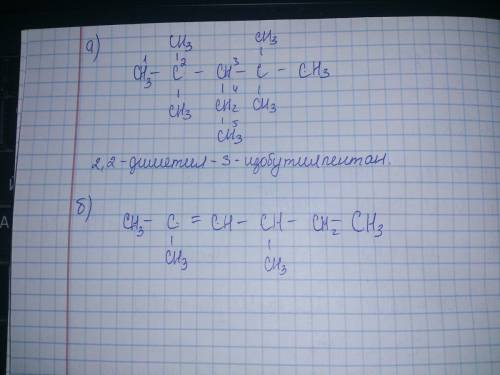 а)
CH3 CH3
1 2 3
CH3 - C - CH - C - CH3
4
CH3 CH2 CH3
5
CH3
2,2-диметил-3-изобутилпентан.
б)
CH3 - C = CH - CH - CH2 - CH3
CH3 CH3